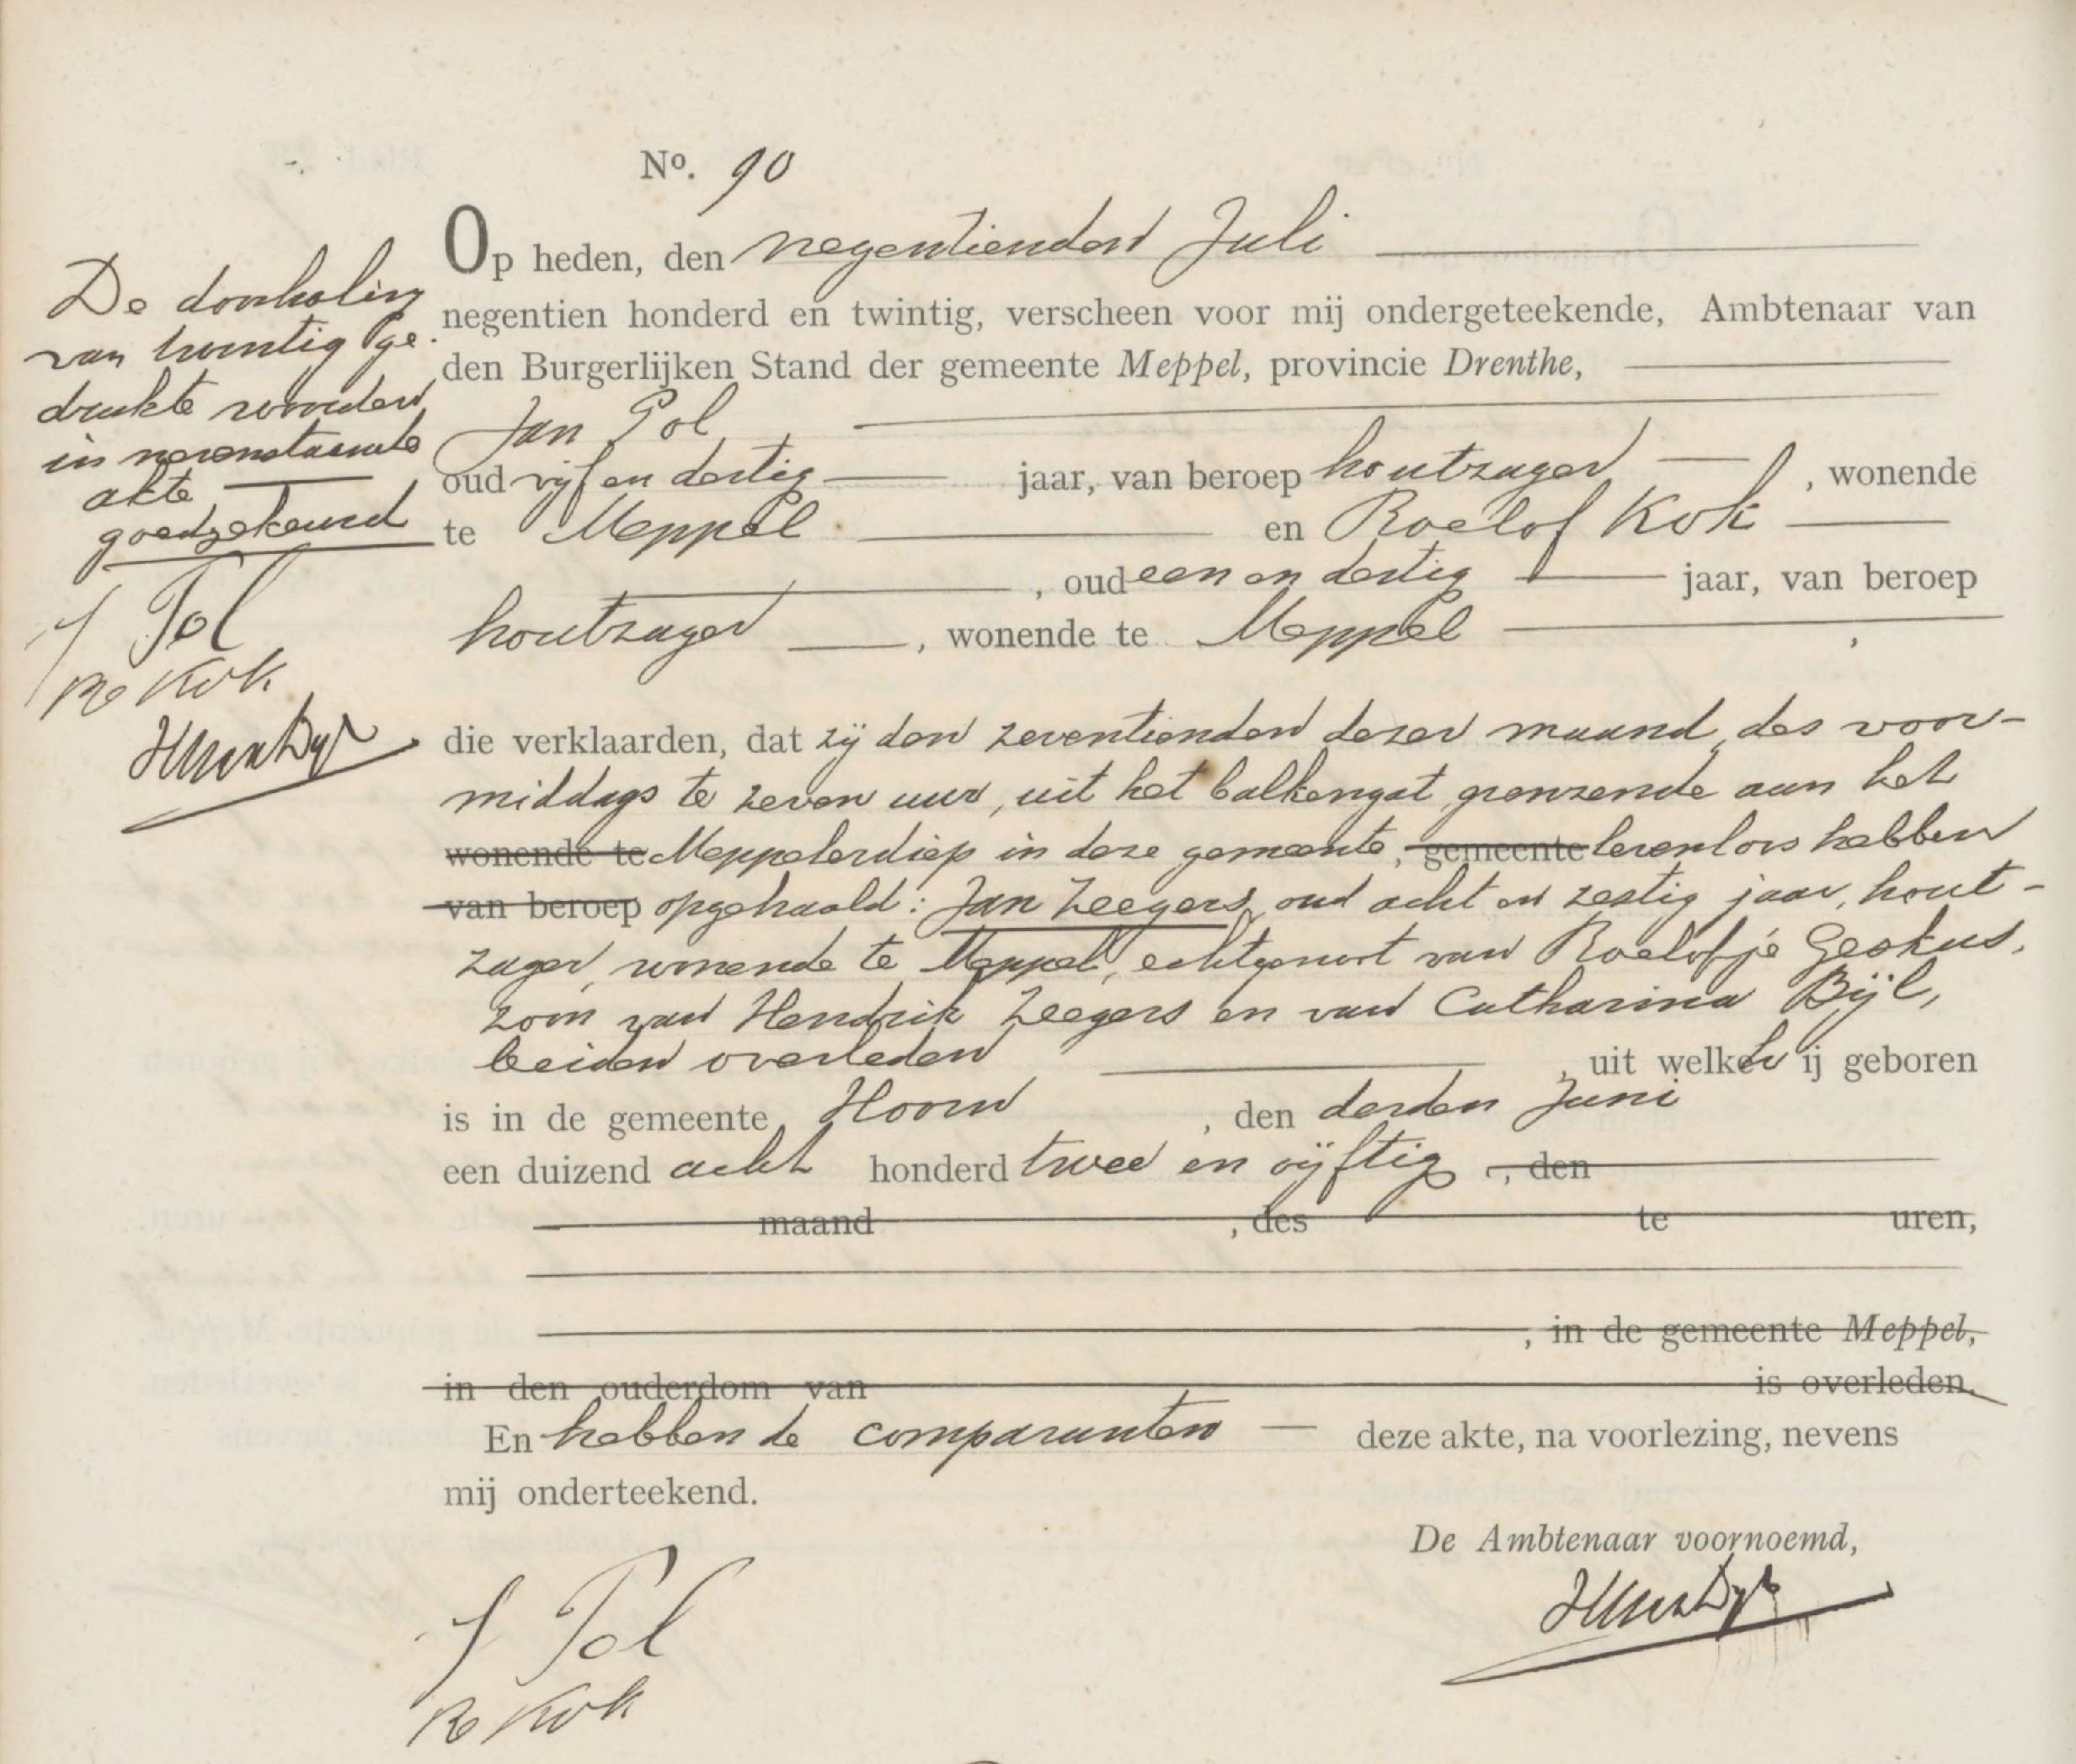 No. 90
Op heden, den negentienden Juli
negentien honderd en twintig, verscheen voor mij ondergeteekende, Ambtenaar van
den Burgerlijken Stand der gemeente Meppel, provincie Drenthe,
Jan Pol
oud vijf en dertig jaar, van beroep houtzager, wonende
te Meppel en Roelof Kok
, oud een en dertig jaar, van beroep
houtzager, wonende te Meppel,
De doorhaling
van twintig ge-
drukte woorden
in nevenstaande
akte
goedgekeurd
J Pol
R Kok
die verklaarden, dat zij den zeventienden dezer maand, des voor-
middags te zeven uur, uit het balkengat, grenzende aan het
wonende te Meppelerdiep in deze gemeente, gemeente levenloos hebben
van beroep opgehaald: Jan Zeegers, oud acht en zestig jaar, hout-
zager, wonende te Meppel, echtgenoot van Roelofje Geskus,
zoon van Hendrik Zeegers en van Catharina Bijl,
beiden overleden, uit welke hij geboren
is in de gemeente Hoorn, den derden Juni
een duizend acht honderd twee en vijftig, den
maand, des te uren,
, in de gemeente Meppel,
in den ouderdom van is overleden.
En hebben de comparanten deze akte, na voorlezing, nevens
mij onderteekend.
De Ambtenaar voornoemd,
J Pol
R Kok